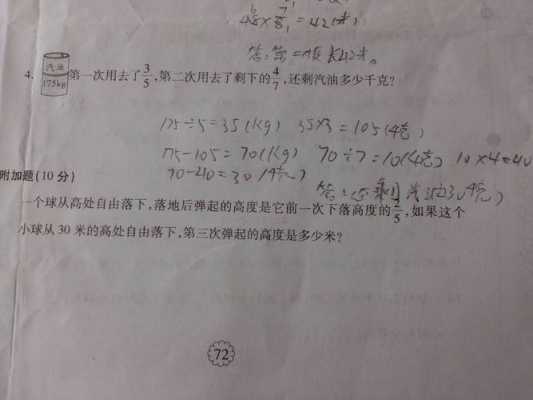 48×7/8=42(米)
答:第二根长42米。
汽油
4. 175kg 第一次用去了3/5,第二次用去了剩下的4/7,还剩汽油多少千克?
175÷5=35(kg) 35×3=105(千克)
175-105=70(kg) 70÷7=10(千克) 10×4=40
附加题(10分)
70-40=30(千克)
答:还剩汽油30千克)
一个球从高处自由落下,落地后弹起的高度是它前一次下落高度的2/5,如果这个
小球从30米的高处自由落下,第三次弹起的高度是多少米?
72